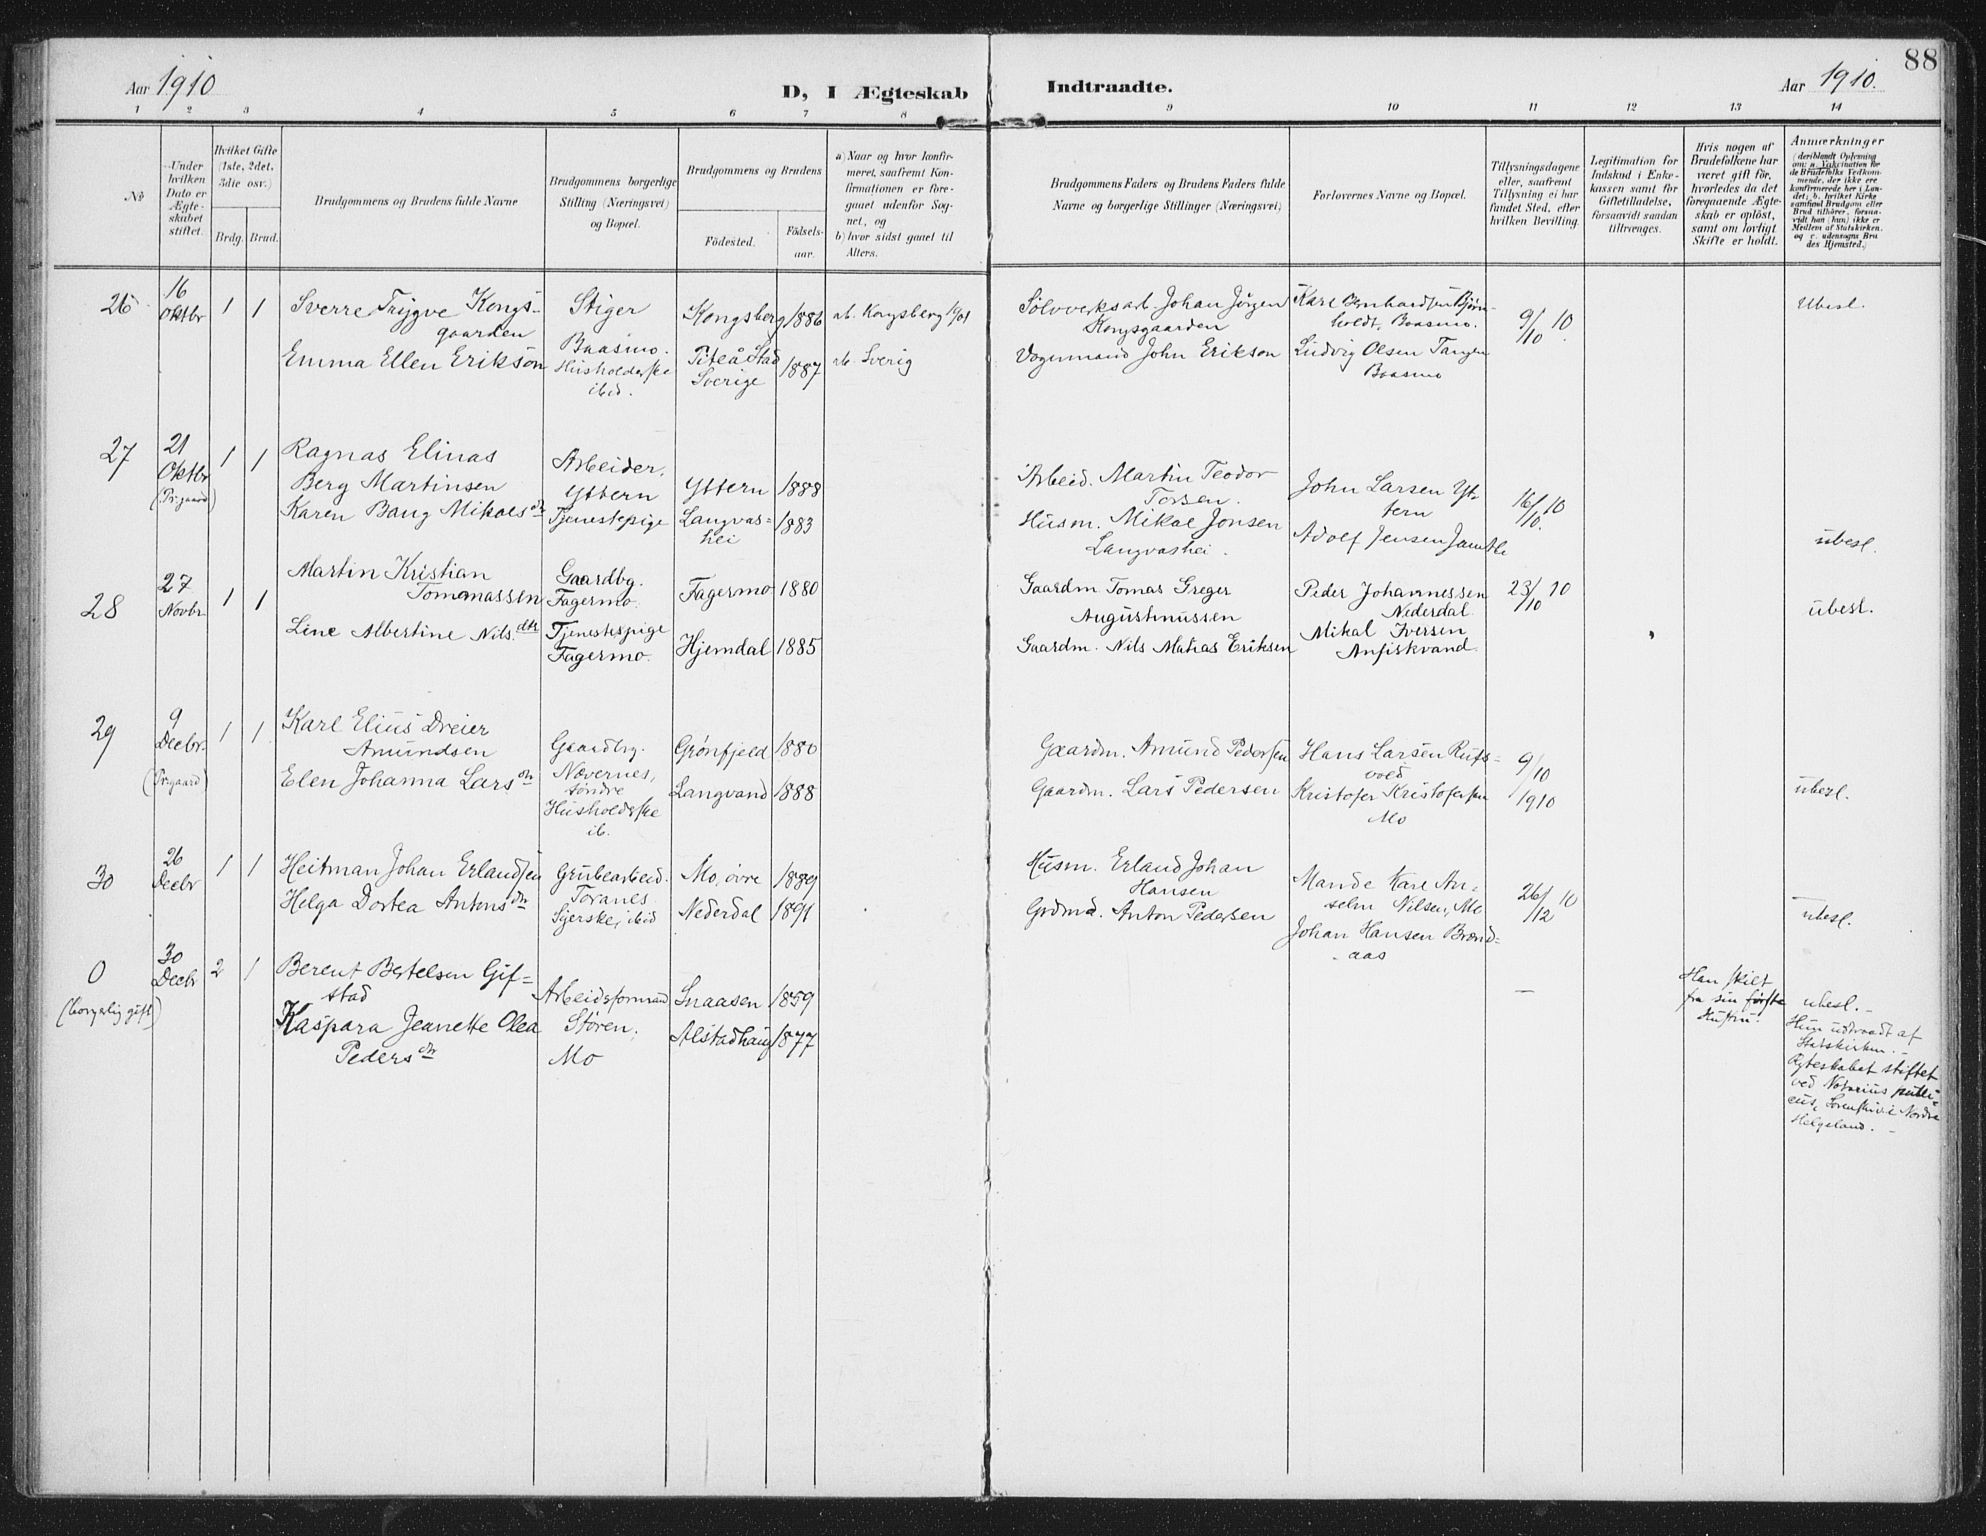 88
Aar 1910
D, I Ægteskab
Indtraadte.
Aar 1910.
1 2 3 4 5 6 7 8 9 10 11 12 13 14
No
Under
hvilken
Dato er
Ægte-
skabet
stiftet.
Hvilket Gifte
(1ste, 2det,
3die osv.)
Brdg. Brud.
Brudgommens og Brudens fulde Navne
Brudgommens borgerlige
Stilling (Næringsvei)
og Bopæl.
Brudgommens og Brudens
Fødested.
Fødsels-
aar.
a) Naar og hvor konfir-
meret, saafremt Kon-
firmationen er fore-
gaaet udenfor Sog-
net, og
b) hvor sidst gaaet til
Alters.
Brudgommens Faders og Brudens Faders fulde
Navne og borgerlige Stillinger (Næringsvei)
Forlovernes Navne og Bopæl.
Tillysningsdagene
eller, saafremt
Tillysning ei har
fundet Sted, efter
hvilken Bevilling.
Legitimation for
Indskud i Enke-
kassen samt for
Giftetilladelse,
forsaavidt saadan
tiltrænges.
Hvis nogen af
Brudefolkene har
været gift før,
hvorledes da det
foregaaende Ægte-
skab er opløst,
samt om lovligt
Skifte er holdt.
Anmærkninger
(deriblandt Oplysning
om: a. Vakcination for
de Brudefolks Vedkom-
mende, der ikke ere
konfirmerede her i Lan-
det; b. hvilket Kirke
samfund Brudgom eller
Brud tilhører, forsaa-
vidt han (hun) ikke er
Medlem af Statskirken.
og c. udensogns Bru
des Hjemsted.)
26
16
Oktbr
1 1
Sverre Trygve Kongs-
gaarden
Emma Ellen Erikson
Stiger
Baasmo.
Husholderske
ibid.
Kongsberg 1886
Piteå Stad
Sverige 1887
ab. Kongsberg 1901
ab. Sverig
Sølvverksarb Johan Jørgen
Kongsgaarden
Vognmand John Erikson
Karl Bernhardsen Bjørn-
holdt, Baasmo.
Ludvig Olsen Tangen
Baasmo
9/10 10.
Ubesl.
27
21
Oktbr
(Prgaard)
1 1
Ragnas Elinas
Berg Martinsen
Karen Bang Mikalsdtr
Arbeider.
Yttern
Tjenestepige
Yttern 1888
Langvas-
hei 1883
Arbeid. Martin Teodor
Torsen.
Husm. Mikal Jonsen
Langvashei.
John Larsen Yt-
tern
Adolf Jensen
16/10. 10
ubesl.
28
27
Novbr
1 1
Martin Kristian
Tommassen
Line Albertine Nils.dtr
Gaardbg.
Fagermo.
Tjenestepige
Fagermo.
Fagermo 1880
Hjemdal 1885
Gaardm Tomas Greger
Augustinussen
Gaardm. Nils Matias Eriksen
Peder Johannessen
Nederdal
Mikal Iversen
Anfiskvand.
23/10 10
ubesl.
29
9
Decbr.
(Prgaard)
1 1
Karl Elius Dreier
Amundsen
Elen Johanna Larsdtr
Gaardbg.
Nævernes,
søndre
Husholderske
ib.
Grønfjeld 1880
Langvand 1888
Gaardm. Amund Pedersen
Gaardm. Lars Pedersen
Hans Larsen Rufs-
vold
Kristofer Kristofersen
Mo
9/10
1910
ubesl.
30
26
Decbr
1 1
Heitman Johan Erlandsen
Helga Dortea Antonsdtr
Grubearbeid.
Toranes
Syerske, ibid
Mo, øvre 1889
Nederdal 1891
Husm. Erland Johan
Hansen
Grdmd. Anton Pedersen
Mande Karl An-
selm Nilsen, Mo
Johan Hansen Brend-
aas
26/12 10
ubesl.
0
(borgerlig gift)
30
Decbr
2 1
Berent Bertelsen Gif-
stad
Kaspara Jeanette Olea
Pedersdtr
Arbeidsformand
Støren,
Mo
Snaasen 1859
Alstadhaug 1877
—
Han skilt
fra sin første
Hustru.
ubesl. -
Hun udtraadt af
Statskirken. -
Ægteskabet stiftet
ved Notarius publi-
cus, Sorenskriv i Nordre
Helgeland. -